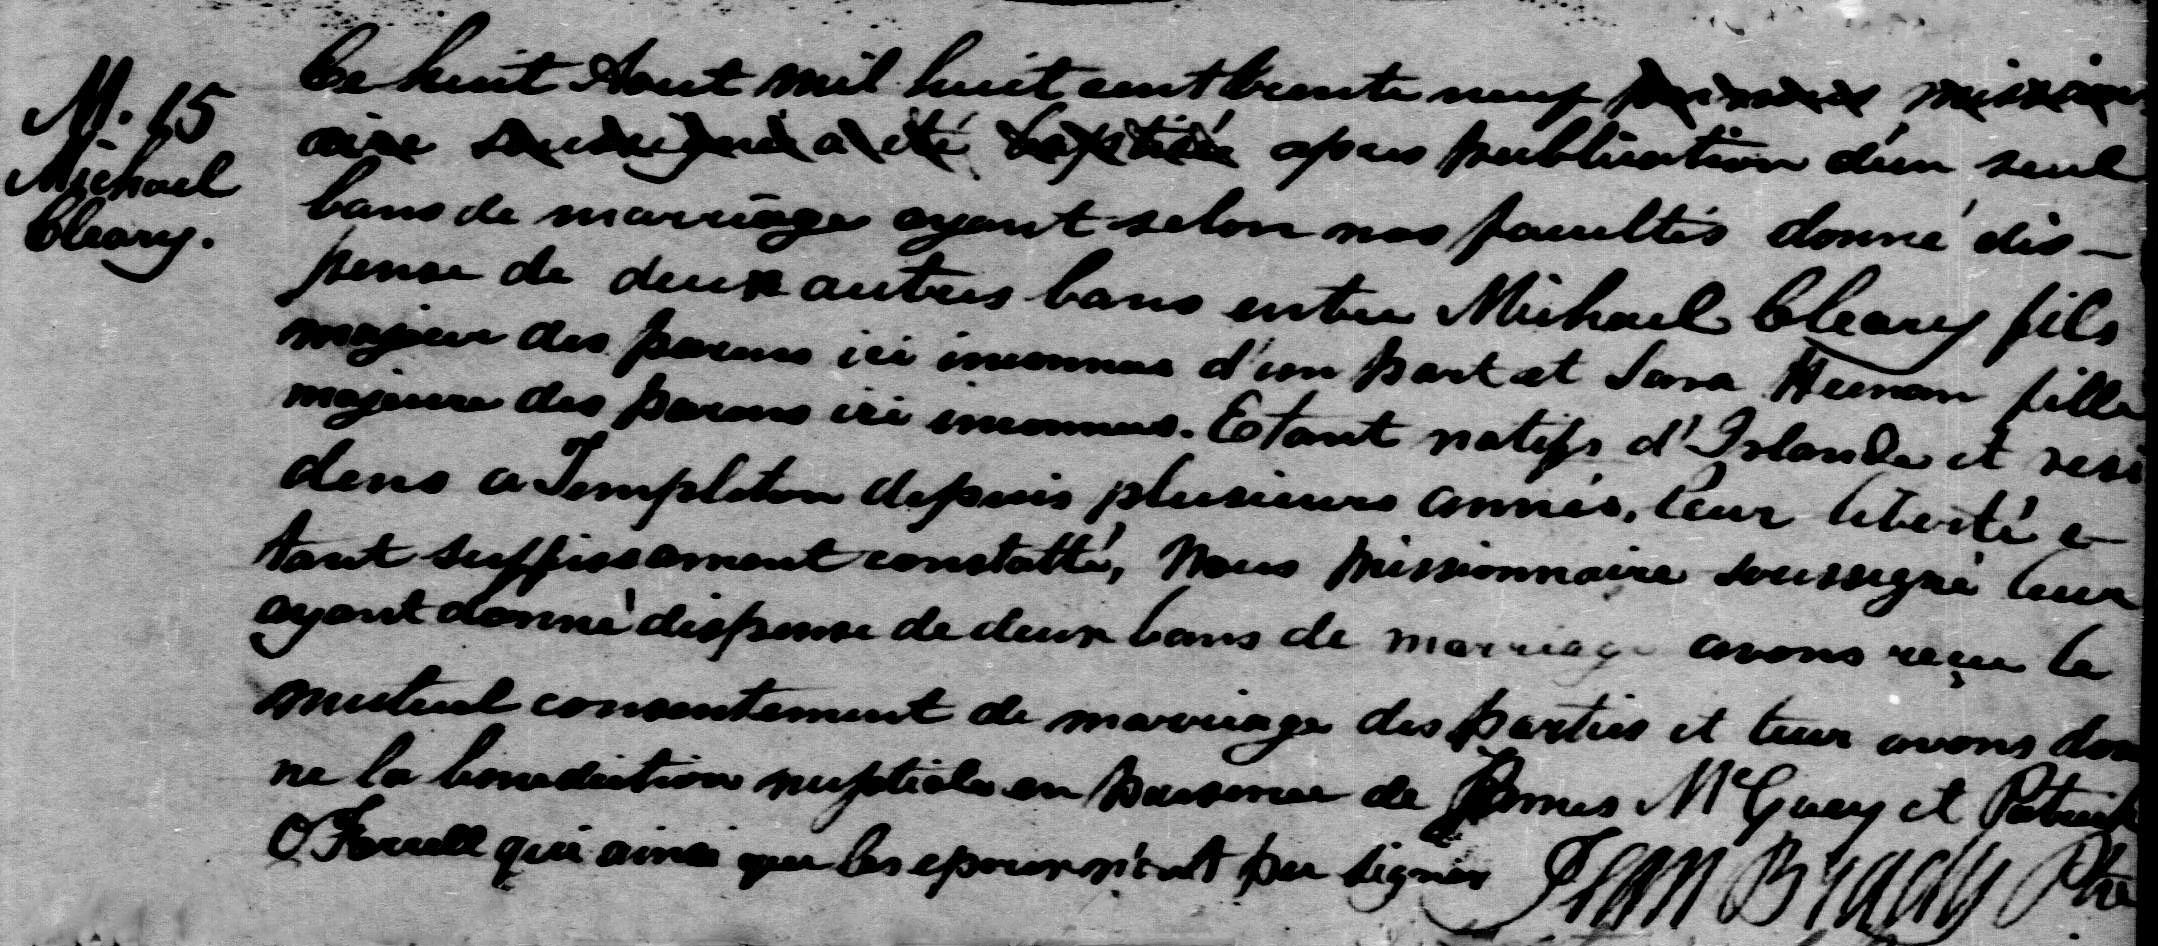 M. 15
Michael
Cleary.
Ce huit Aout mil huit cent trente neuf par nous mission
aire soussigné a été baptisé apres publication d'un seul
bans de marriage ayant selon nos facultés donné dis-
pense de deux autres bans entre Michael Cleary fils
majeur des parens ici inconnus d'un part et Sara Heenan fille
majeure des parens ici inconnus. Etant natifs d'Irlande et resi
dens a Templeton depuis plusieurs années, leur liberté e-
tant suffissament constatté, Nous missionnaire soussigné leur
ayant donné dispense de deux bans de marriage avons reçu le
mutuel consentement de marriage des parties et leur avons don
ne la benediction nuptiale en presence de James McGuey et Patrick
O'Farrell qui ainsi que les epoux n'ont pu signer Jean Brady Ptre